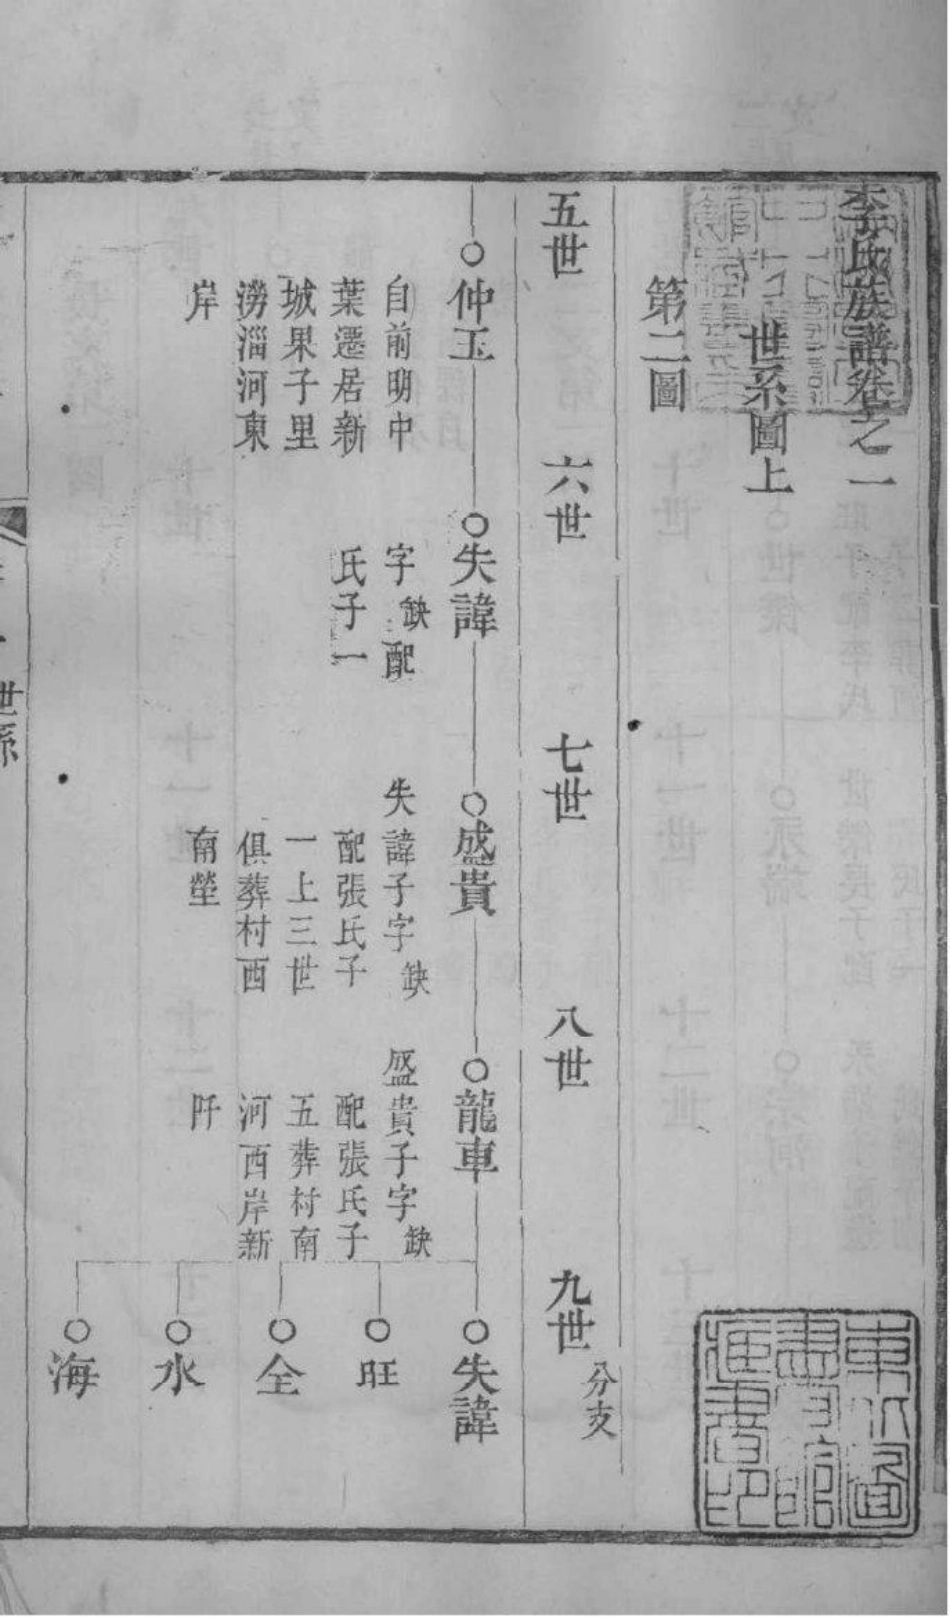 李氏族譜卷之一
世系圖上
第二圖
五世
六世
七世
八世
九世
分支
仲玉
自前明中
葉遷居新
城果子里
澇淄河東
岸
失諱
字缺配
氏子一
盛貴
失諱子字缺
配張氏子
一上三世
俱葬村西
南塋
龍車
盛貴子字缺
配張氏子
五葬村南
河西岸新
阡
失諱
旺
全
水
海
世系